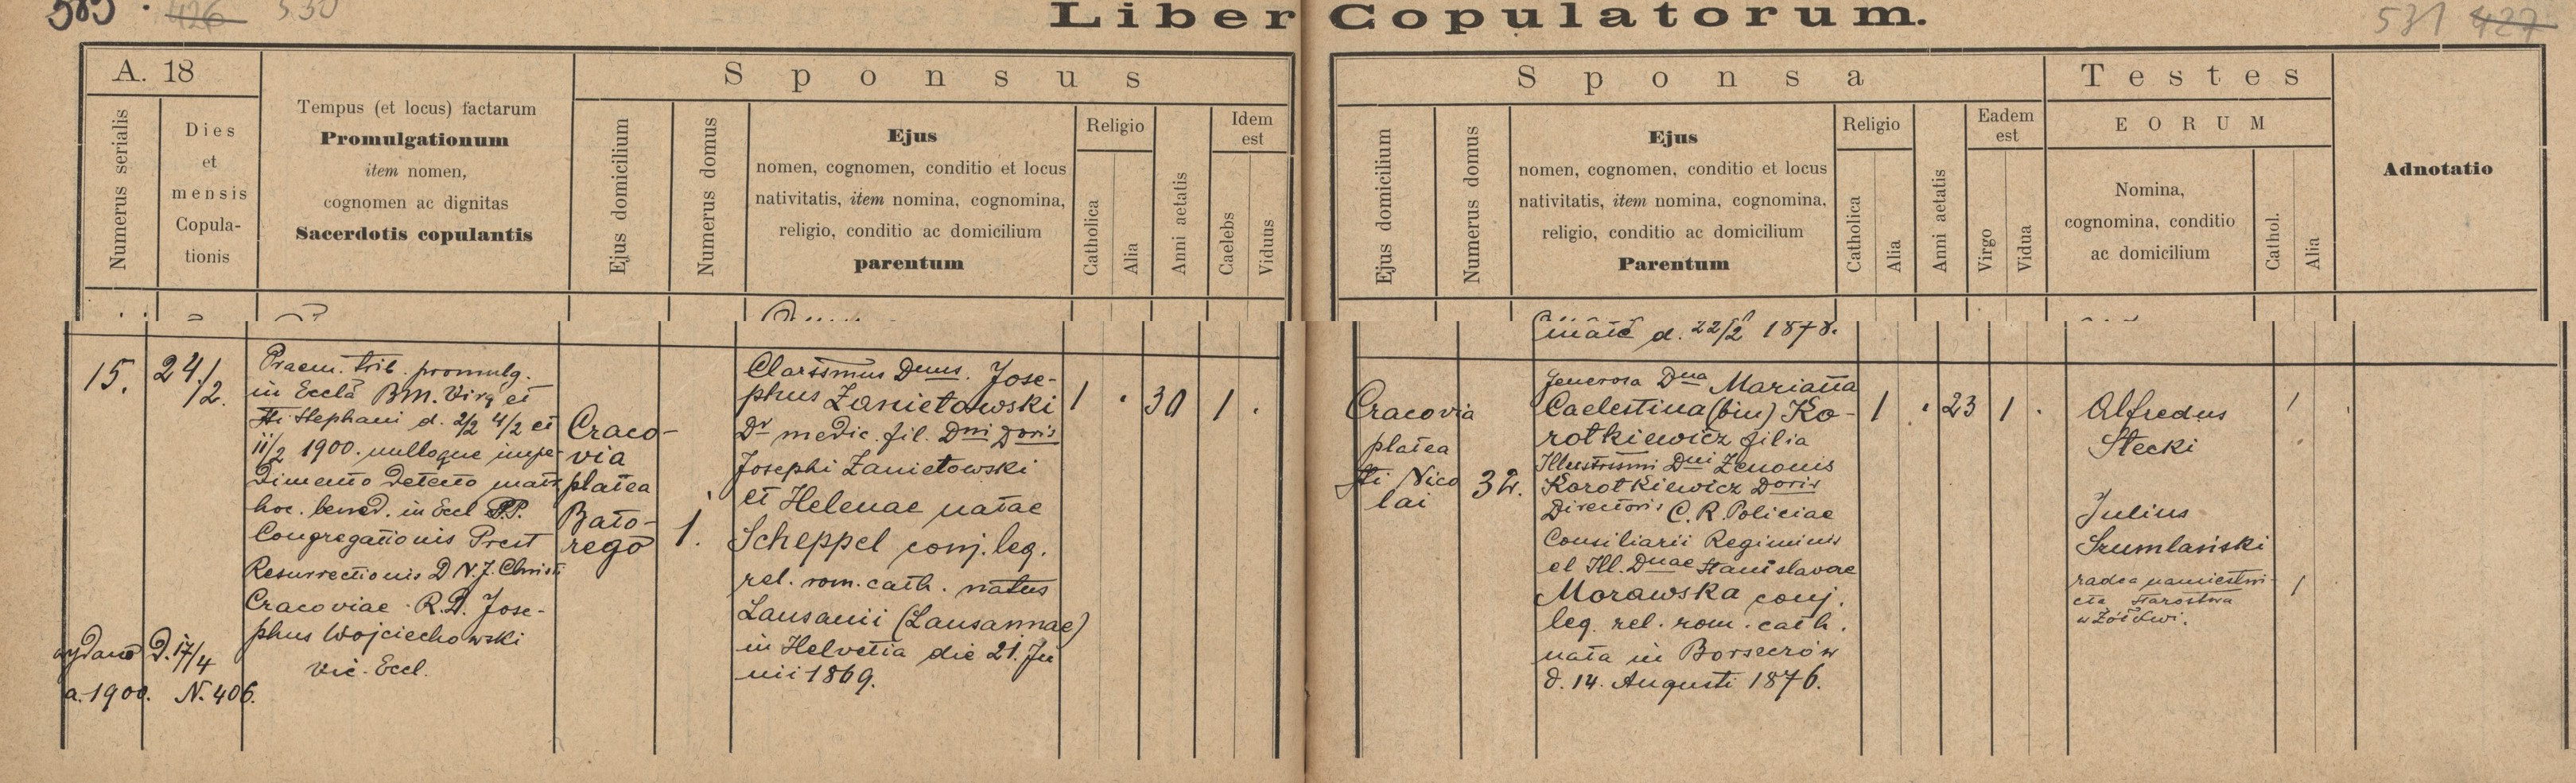 Liber Copulatorum.
585 · 426 530
531 427
A. 18
Numerus serialis
Dies
et
mensis
Copula-
tionis
Tempus (et locus) factarum
Promulgationum
item nomen,
cognomen ac dignitas
Sacerdotis copulantis
Sponsus
Ejus domicilium
Numerus domus
Ejus
nomen, cognomen, conditio et locus
nativitatis, item nomina, cognomina,
religio, conditio ac domicilium
parentum
Religio
Catholica
Alia
Anni aetatis
Idem
est
Caelebs
Viduus
Sponsa
Ejus domicilium
Numerus domus
Ejus
nomen, cognomen, conditio et locus
nativitatis, item nomina, cognomina,
religio, conditio ac domicilium
Parentum
Religio
Catholica
Alia
Anni aetatis
Eadem
est
Virgo
Vidua
Testes
EORUM
Nomina,
cognomina, conditio
ac domicilium
Cathol.
Alia
Adnotatio
d. 22/2 1878.
15.
24/2.
Praem. trib. promulg.
in Eccla BM. Virg et
Sti Stephani d. 2/2 4/2 et
11/2 1900. nulloque impe-
dimento detecto matr
hoc. bened. in Eccl PP.
Congregationis Presb
Resurrectionis D N. J. Christi
Cracoviae R.D. Jose-
phus Wojciechowski
vic. Eccl.
wydano D. 17/4
a. 1900. N. 406.
Craco-
via
platea
Bato-
rego
1.
Clarssimus Dnus. Jose-
phus Zanietowski
Dr medic. fil. Dni Doris
Josephi Zanietowski
et Helenae natae
Scheppel conj. leg.
rel. rom. cath. natus
Lausanii (Lausannae)
in Helvetia die 21. Ju
nii 1869.
1 · 30 1 ·
Cracovia
platea
Sti Nico
lai
32.
Generosa Dna Marianna
Caelestina (bin) Ko-
rotkiewicz filia
Illustrissimi Dni Zenonis
Korotkiewicz Doris
Directoris C. R. Policiae
Consiliarii Regiminis
et Ill. Dnae Stanislavae
Morawska conj.
leg. rel. rom. cath.
nata in Borszczów
d. 14. Augusti 1876.
1 · 23 1 ·
Alfredus
Stecki
1
Julius
Szumlański
radca namiestni-
cta Starostwa
w Żółkwi.
1